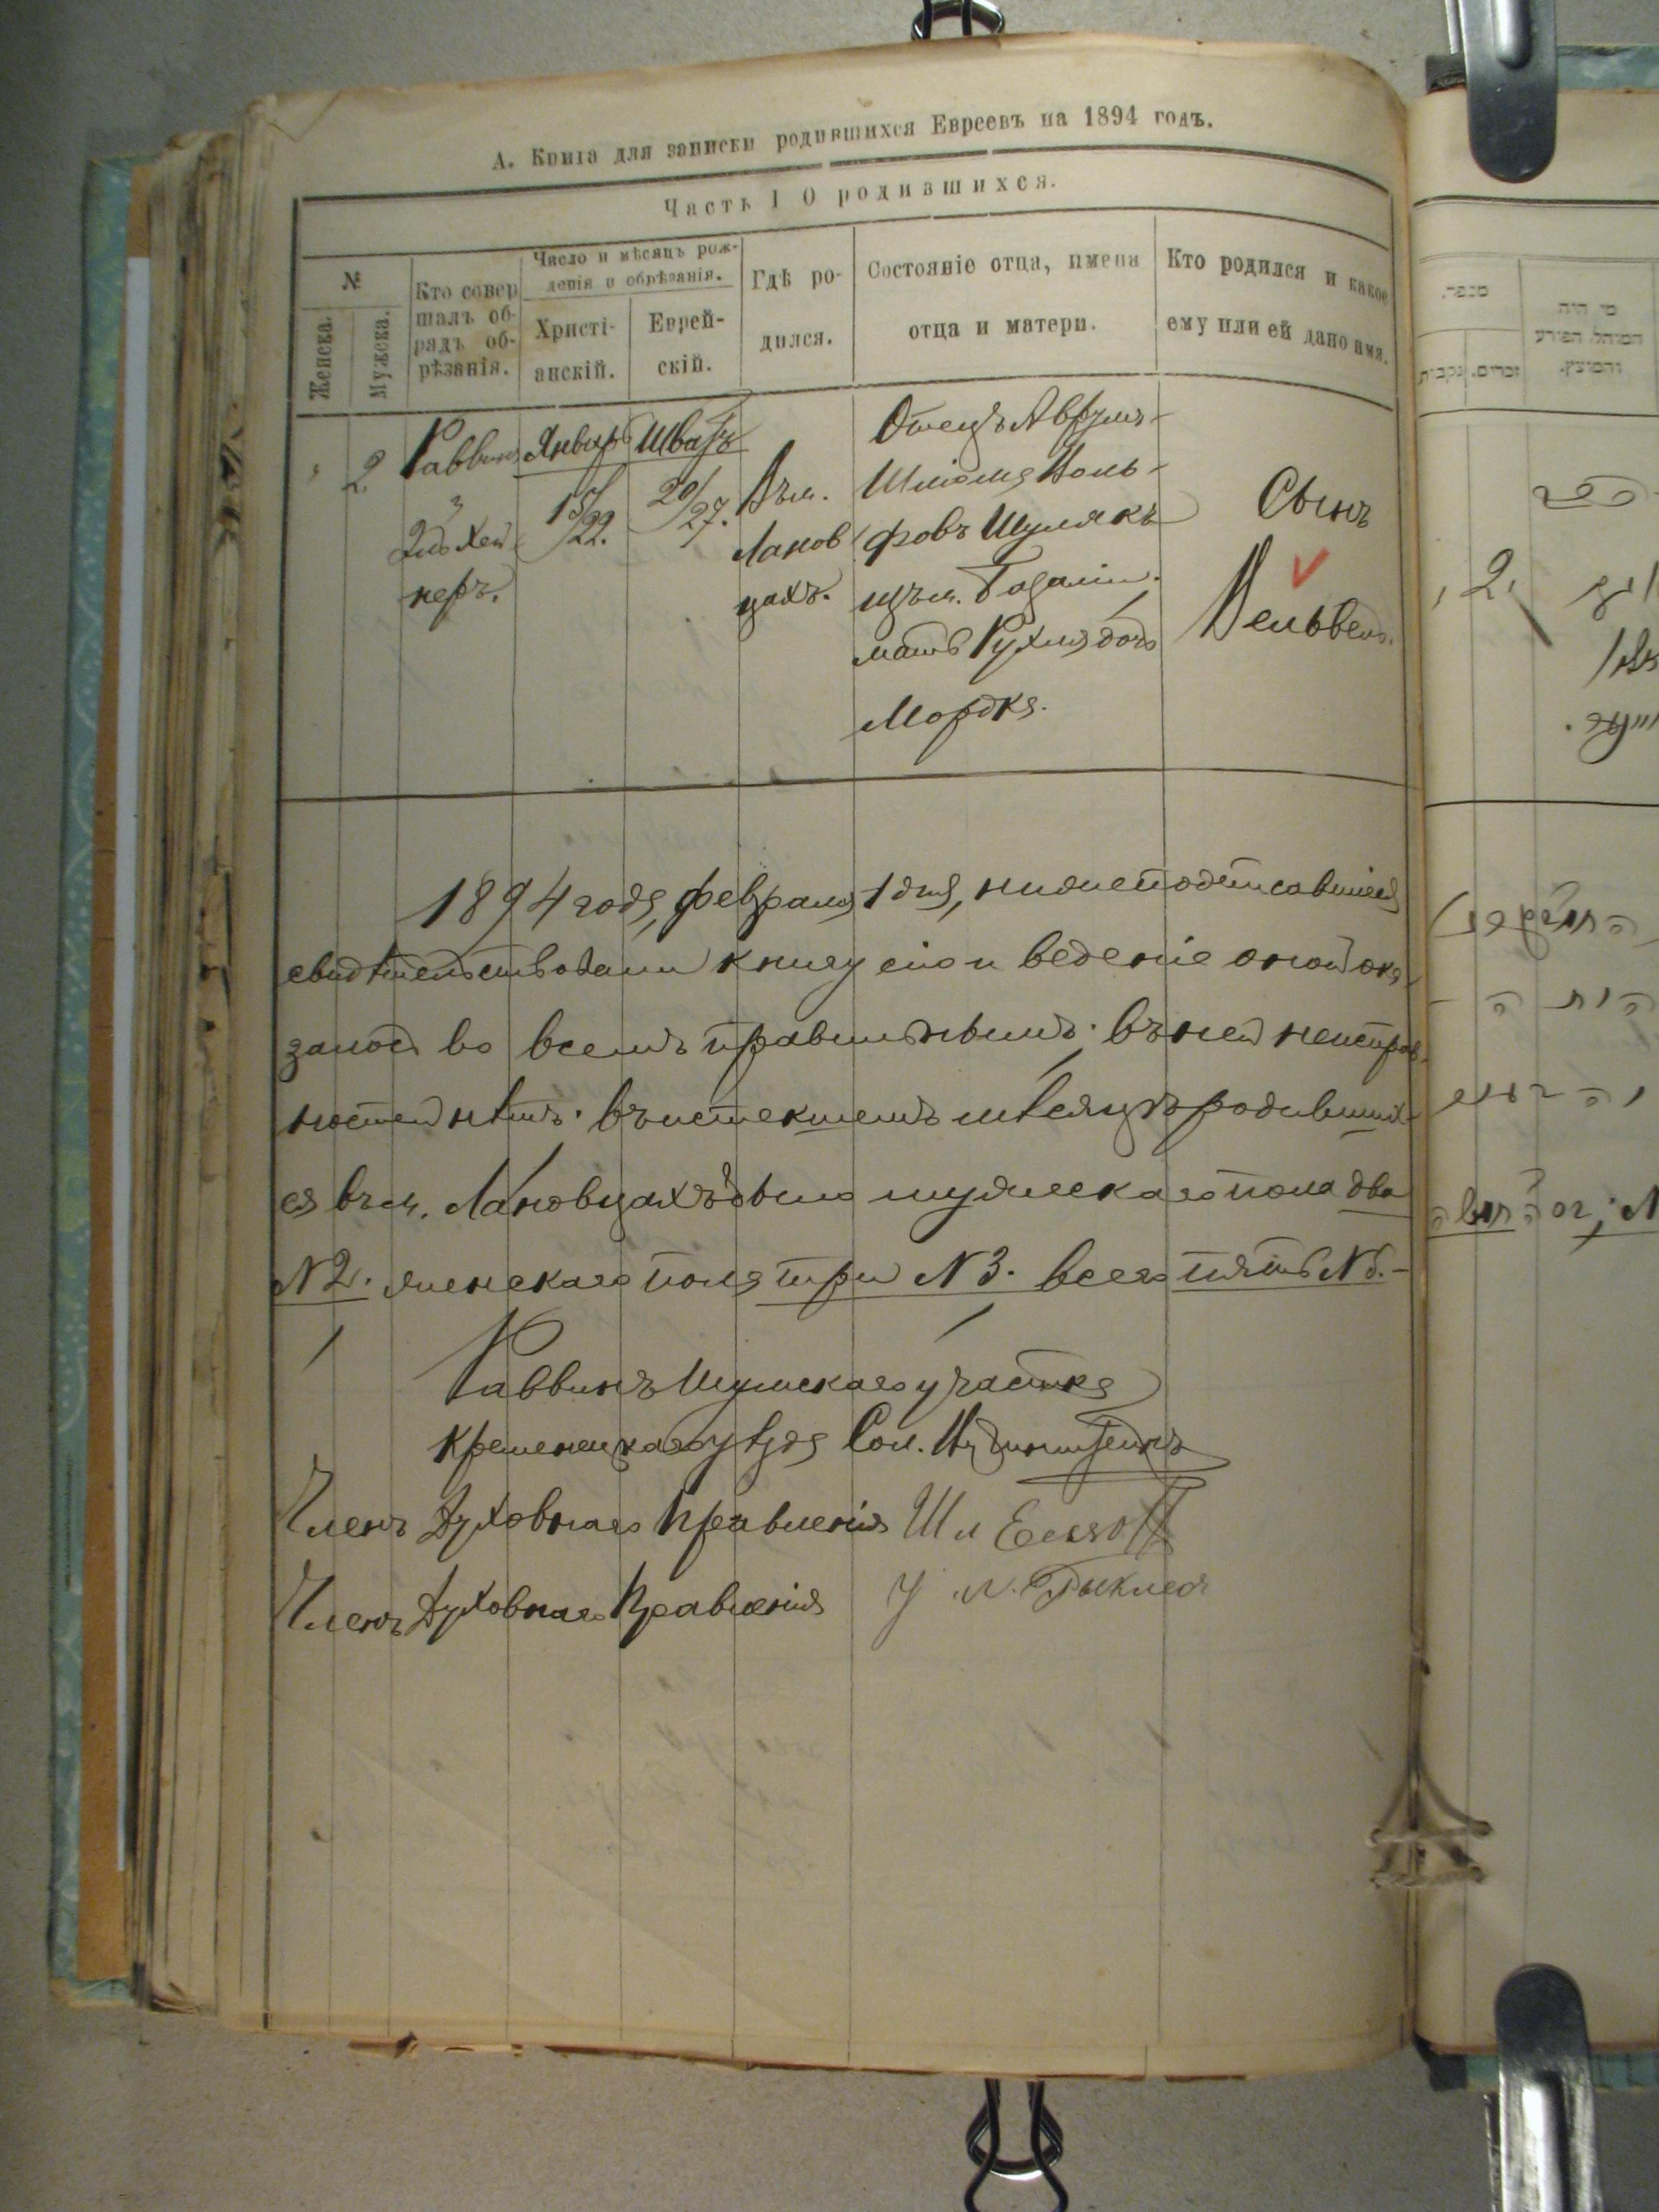 А. Книга для записки родившихся Евреевъ на 1894 годъ.
Часть I О родившихся.
№
Женска.
Мужска.
Кто совершалъ об-
рядъ об-
рѣзанія.
Число и мѣсяцъ рож-
денія и обрѣзанія.
Христі-
анскій.
Еврей-
скій.
Гдѣ ро-
дился.
Состояніе отца, имена
отца и матери.
Кто родился и какое
ему или ей дано имя.
2
Раввинъ
Январь
15/22.
Шватъ
20/27.
Въ м.
Ланов
цахъ.
Отецъ Аврумъ-
Шлiома Воль-
фовъ Шумякъ
мать Рухля дочь
Мордка.
Сынъ
Вельвель.
1894 года, февраля 1 дня, нижеподписавшіеся
свидѣтельствовали книгу сію и веденіе оной ока-
залось во всемъ правильнымъ; въ ней неисправ-
ностей нѣтъ. въ истекшемъ мѣсяцѣ родивших-
ся въ м. Лановцахъ было мужескаго пола два
N 2. женскаго пола три N 3. всего пять N 5.-
Раввинъ Шумскаго участка
Кременецкаго уѣзда Сол.
Членъ Духовнаго Правленія
Членъ Духовнаго Правленія
מספר.
נקבות.
זכרים.
מי היה
המוהל הפורע
והמוצץ.
2